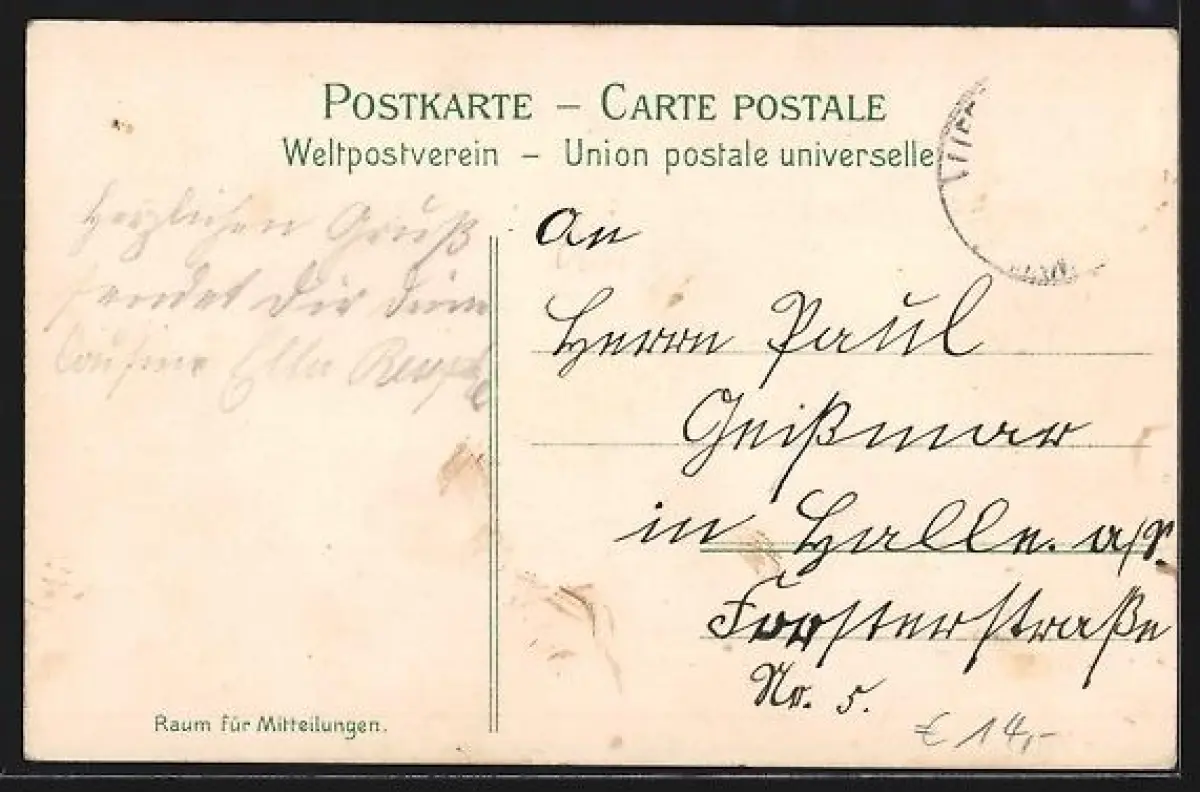 POSTKARTE – CARTE POSTALE
Weltpostverein – Union postale universelle
Herzlichen Gruß
sendet Dir Deine
Cousine Ella
An
Herrn Paul
Geißmar
in Halle. a/S.
Forsterstraße
No. 5.
Raum für Mitteilungen.
€ 14,-